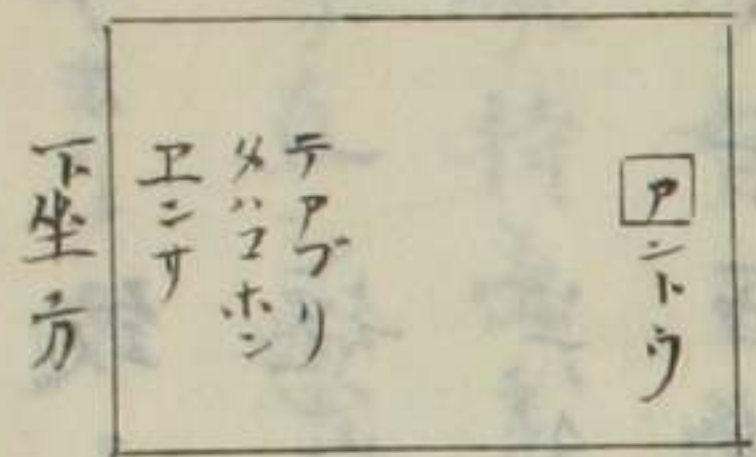 アントウ
テアブリ
タハコホン
エンサ
下坐方